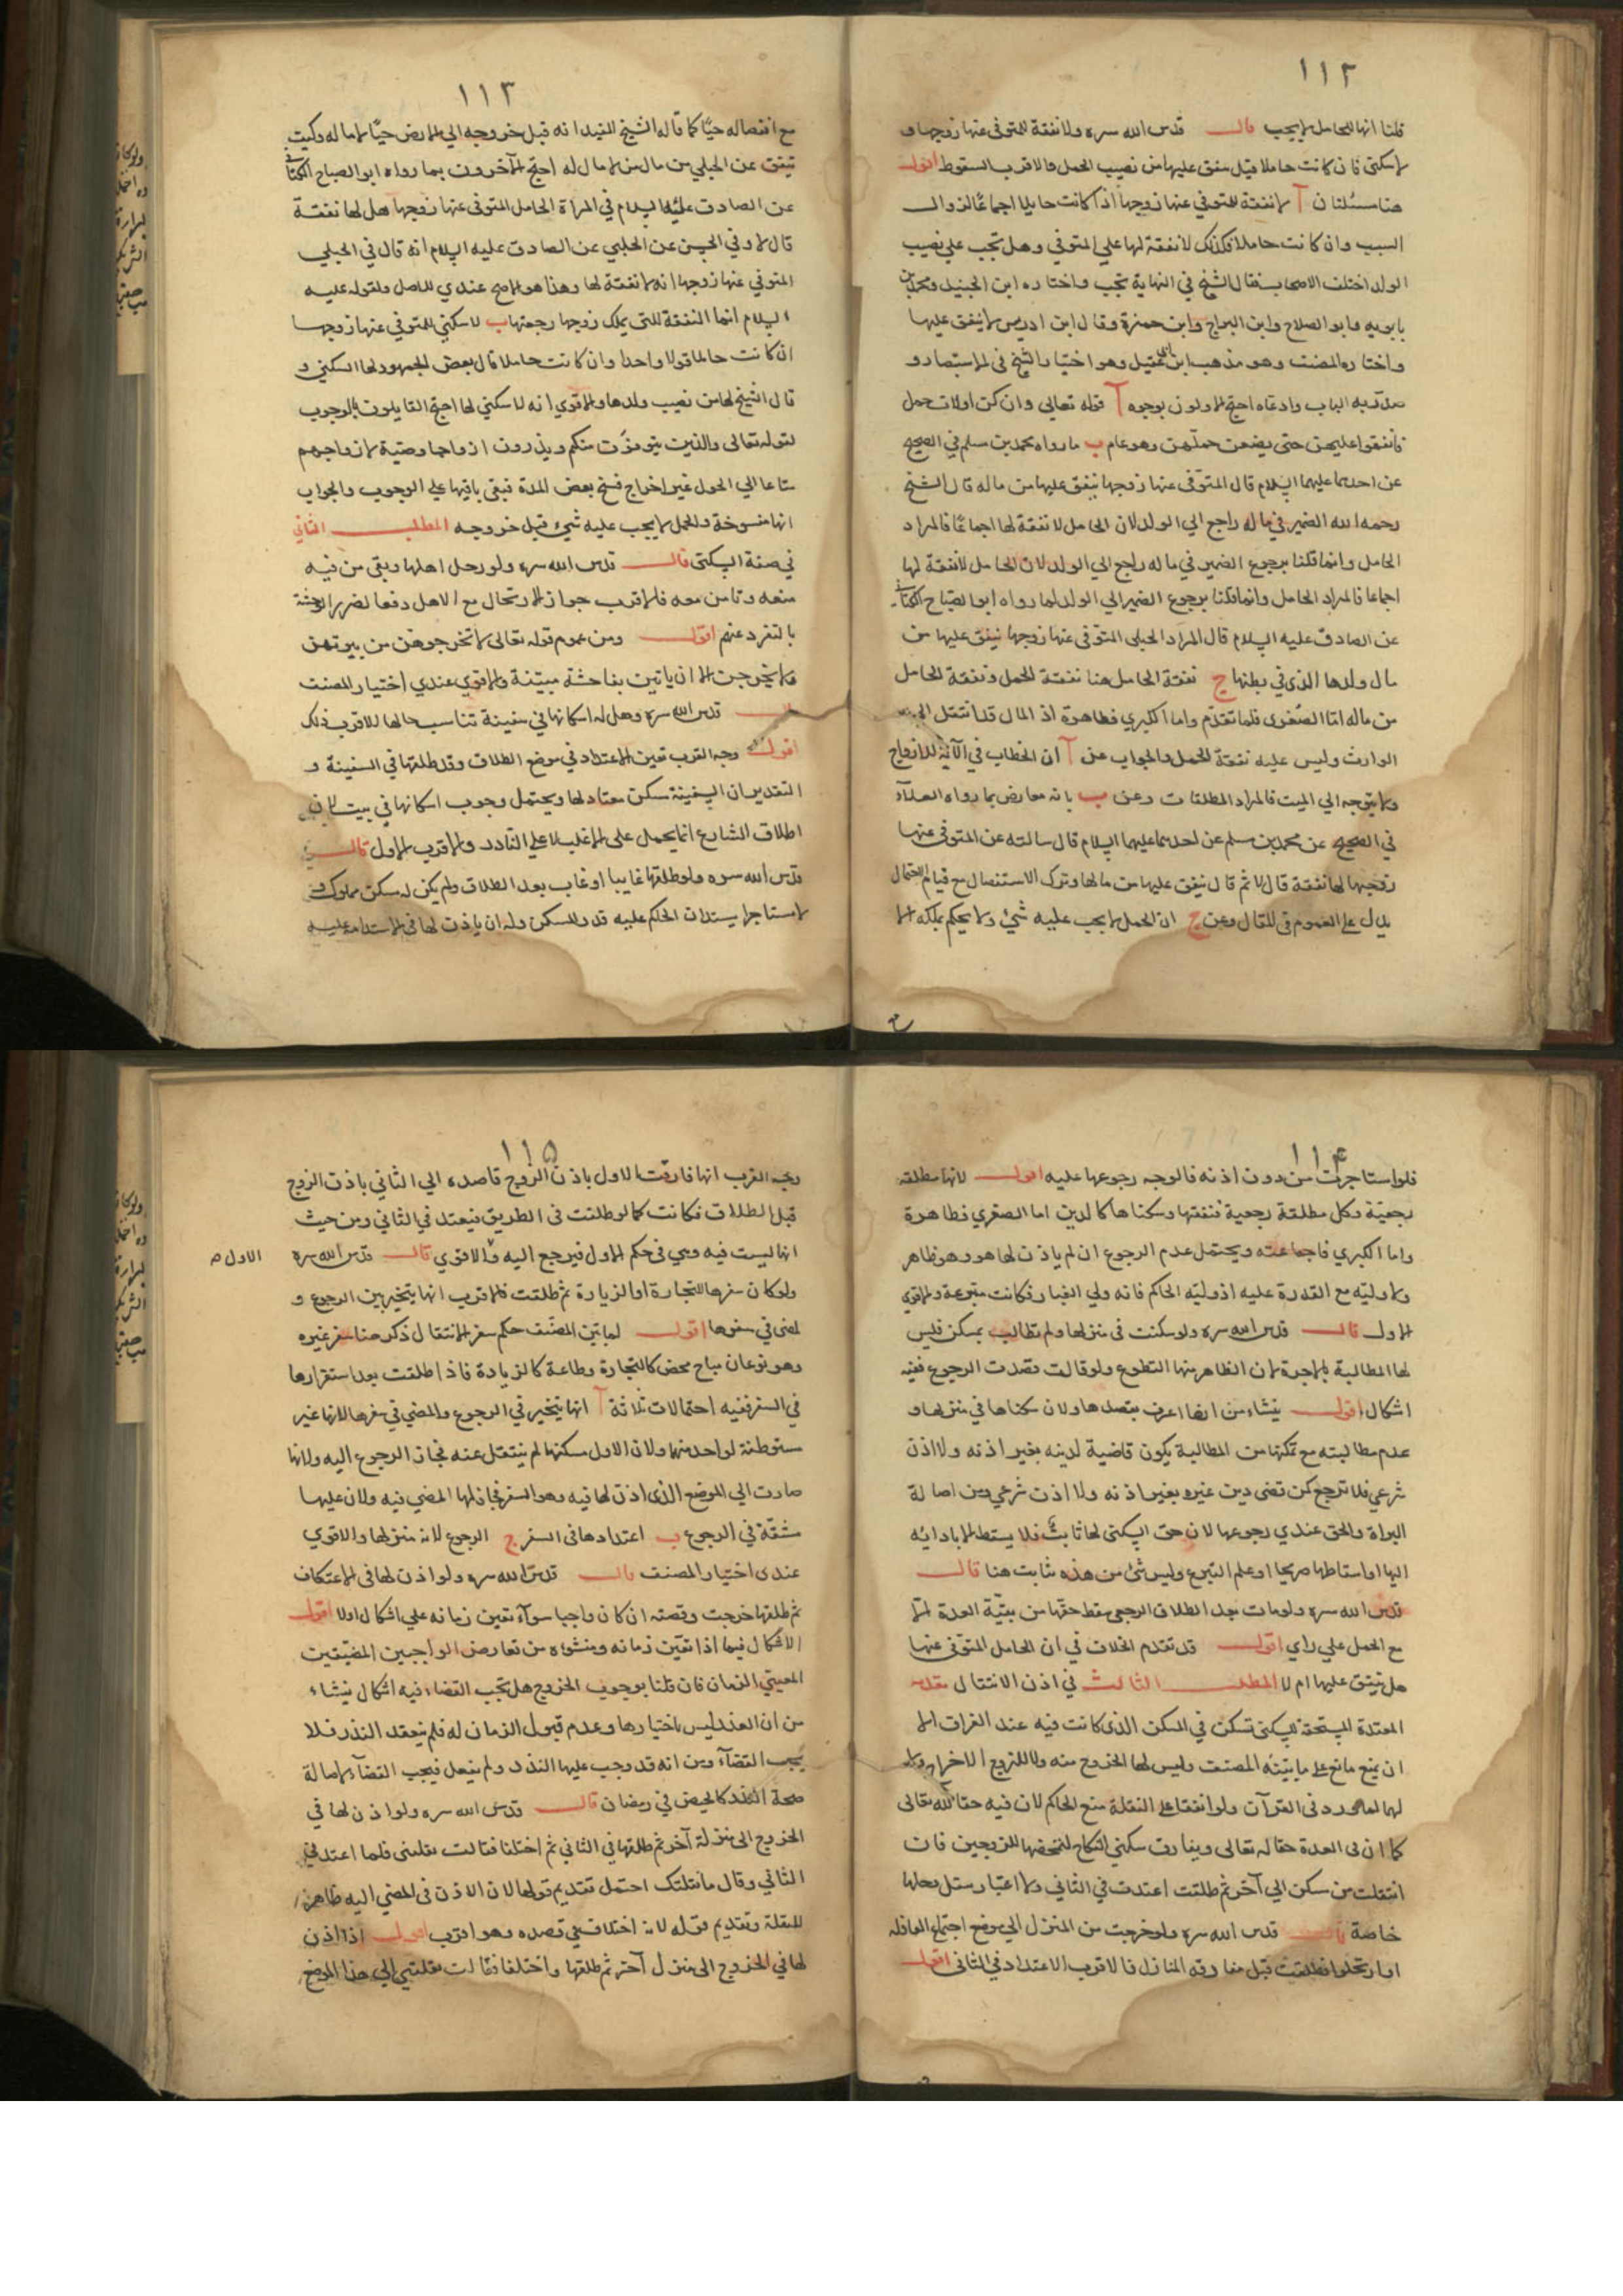 ١١٢
قلنا انها للحامل لا يجب قال قدس الله سره ولا نفقة للمتوفى عنها زوجها و
لا سكنى فان كانت حاملا قيل ينفق عليها من نصيب الحمل والاقرب السقوط اقول
هنا مسئلتان آ لا نفقة للمتوفى عنها زوجها اذا كانت حايلا اجماعا لزوال
السبب وان كانت حاملا فكذلك لا نفقة لها على المتوفى وهل تجب على نصيب
الولد اختلف الاصحاب فقال الشيخ في النهاية تجب واختاره ابن الجنيد ومحمد بن
بابويه وابو الصلاح وابن البراج وابن حمزة وقال ابن ادريس لا ينفق عليها
واختاره المصنف وهو مذهب ابن ابي عقيل وهو اختيار الشيخ في الاستبصار و
صدّر به الباب وادعاه احتج الاولون بوجوه آ قوله تعالى وان كن اولات حمل
فانفقوا عليهن حتى يضعن حملهن وهو عام ب ما رواه محمد بن مسلم في الصحيح
عن احدهما عليهما السلام قال المتوفى عنها زوجها ينفق عليها من ماله قال الشيخ
رحمه الله الضمير في ماله راجع الى الولد لان الحامل لا نفقة لها اجماعا فالمراد
الحامل وانما قلنا برجوع الضمير في ماله راجع الى الولد لان الحامل لا نفقة لها
اجماعا فالمراد الحامل وانما قلنا برجوع الضمير الى الولد لما رواه ابو الصباح الكناني
عن الصادق عليه السلام قال المراد الحبلى المتوفى عنها زوجها ينفق عليها من
مال ولدها الذي في بطنها ج نفقة الحامل هنا نفقة للحمل ونفقة الحامل
من ماله اما الصغرى فلما تقدم واما الكبرى فظاهرة اذ المال قد انتقل الى
الوارث وليس عليه نفقة الحمل والجواب عن آ ان الخطاب في الآية للازواج
ولا يتوجه الى الميت فالمراد المطلقات وعن ب بانه معارض بما رواه العلاء
في الصحيح عن محمد بن مسلم عن احدهما عليهما السلام قال سالته عن المتوفى عنها
زوجها لها نفقة قال لا ثم قال ينفق عليها من مالها وترك الاستفصال مع قيام الاحتمال
يدل على العموم في المقال وعن ج ان الحمل لا يجب عليه شئ ولا يحكم بملكه الا
١١٣
مع انفصاله حيا كما قاله الشيخ المفيد انه قبل خروجه الى الارض حيا لا مال له وكيف
ينفق عن الحبلى من مال من لا مال له احتج الآخرون بما رواه ابو الصباح الكناني
عن الصادق عليه السلام في المراة الحامل المتوفى عنها زوجها هل لها نفقة
قال لا وفي الحسن عن الحلبي عن الصادق عليه السلام انه قال في الحبلى
المتوفى عنها زوجها انه لا نفقة لها وهذا هو الاصح عندي للاصل ولقوله عليه
السلام انما النفقة للتى يملك زوجها رجعتها ب لا سكنى للمتوفى عنها زوجها
ان كانت حائلا قولا واحدا وان كانت حاملا قال بعض الجمهور لها السكنى و
قال الشيخ لها من نصيب ولدها والاقوي انه لا سكنى لها احتج القايلون بالوجوب
لقوله تعالى والذين يتوفون منكم ويذرون ازواجا وصية لازواجهم
متاعا الى الحول غير اخراج فنسخ بعض المدة فبقى باقيها على الوجوب والجواب
انها منسوخة والحمل لا يجب عليه شئ قبل خروجه المطلب الثاني
في صفة السكنى قال قدس الله سره ولو رحل اهلها وبقى من فيه
منعه وتامن معه فالاقرب جواز الارتحال مع الاهل دفعا لضرر الوحشة
بالتفرد عنهم اقول ومن عموم قوله تعالى لا تخرجوهن من بيوتهن
ولا يخرجن الا ان ياتين بفاحشة مبينة والاقوي عندي اختيار المصنف
قال قدس الله سره وهل له اسكانها في سفينة تناسب حالها الاقرب ذلك
اقول وجه القرب تعين الاعتداد في موضع الطلاق وقد طلقها في السفينة و
التقدير ان السفينة سكن معتاد لها ويحتمل وجوب اسكانها في بيت لان
اطلاق الشارع انما يحمل على الاغلب لا على النادر والاقرب الاول قال
قدس الله سره ولو طلقها غايبا او غاب بعد الطلاق ولم يكن له سكن مملوك و
لا مستاجر استدان الحاكم عليه قدر المسكن وله ان ياذن لها في الاستدانة عليه
١١۴
فلو استاجرت من دون اذنه فالوجه رجوعها عليه اقول لانها مطلقة
رجعية وكل مطلقة رجعية فنفقتها وسكناها كالدين اما الصغري فظاهرة
واما الكبري فاجماعية ويحتمل عدم الرجوع ان لم ياذن لها هو وهو ظاهر
ولا وليه مع القدرة عليه اذ وليه الحاكم فانه ولي الغياب فكانت متبرعة والاقوي
الاول قال قدس الله سره ولو سكنت في منزلها ولم تطالب بمسكن فليس
لها المطالبة بالاجرة لان الظاهر منها التطوع ولو قالت قصدت الرجوع ففيه
اشكال اقول ينشاء من انها اعرف بقصدها ولان سكناها في منزلها و
عدم مطالبته مع تمكنها من المطالبة يكون قاضية لدينه بغير اذنه ولا اذن
شرعي فلا ترجع كمن قضى دين غيره بغير اذنه ولا اذن شرعي ومن اصالة
البراة والحق عندي رجوعها لان حق السكنى لها ثابت فلا يسقط الا بادائه
اليها او اسقاطها صريحا او علم التبرع وليس شئ من هذه بثابت هنا قال
قدس الله سره ولو مات بعد الطلاق الرجعي سقط حقها من بقية العدة الا
مع الحمل على راي اقول قد تقدم الخلاف في ان الحامل المتوفى عنها
هل ينفق عليها ام لا المطلب الثالث في اذن الانتقال
المعتدة المستحقة للسكنى تسكن في المسكن الذي كانت فيه عند الفراق الا
ان يمنع مانع على ما بينه المصنف وليس لها الخروج منه ولا للزوج الاخراج
لها لما ورد في القرآن ولو اتفقا على النقلة منع الحاكم لان فيه حقا لله تعالى
كما ان في العدة حقا له تعالى ويفارق سكنى النكاح لتمحضها للزوجين فان
انتقلت من سكن الى آخر ثم طلقت اعتدت في الثاني ولا اعتبار بنقل رحلها
خاصة قال قدس الله سره ولو خرجت من المنزل الى موضع اجتماع القافلة
او ارتحلوا فطلقت قبل مفارقة المنازل فالاقرب الاعتداد في الثاني اقول
١١۵
وجه القرب انها فارقت الاول باذن الزوج قاصدة الى الثاني باذن الزوج
قبل الطلاق فكانت كما لو طلقت في الطريق فيعتد في الثاني ومن حيث
انها ليست فيه وهي في حكم الاول فيرجع اليه والاقوي قال قدس الله سره
الاول م
ولو كان سفرها للتجارة او الزيارة ثم طلقت فالاقرب انها يتخير بين الرجوع و
المضى في سفرها اقول لما بين المصنف حكم سفر الانتقال ذكر هنا سفر غيره
وهو نوعان مباح محض كالتجارة وطاعة كالزيادة فاذا طلقت بعد استقرارها
في السفر ففيه احتمالات ثلاثة آ انها يتخير في الرجوع والمضى في سفرها لانها غير
مستوطنة لواحد منهما ولان الاول مسكنها لم ينتقل عنه فجاز الرجوع اليه ولانها
صارت الى الموضع الذي اذن لها فيه وهو السفر فجاز لها المضى فيه ولان عليها
مشقة في الرجوع ب اعتدادها في السفر ج الرجوع لانه منزلها والاقوي
عندي اختيار المصنف قال قدس الله سره ولو اذن لها في الاعتكاف
ثم طلقها خرجت وقضته ان كان واجبا سوآء تعين زمانه على اشكال اولا اقول
الاشكال فيما اذا تعين زمانه ومنشؤه من تعارض الواجبين المضيقين
المعيني الزمان فان قلنا بوجوب الخروج هل تجب القضاء فيه اشكال ينشاء
من ان العذر ليس باختيارها وعدم قبول الزمان له فلم ينعقد النذر فلا
يجب القضآء ومن انه قد وجب عليها النذر ولم يفعل فيجب القضآء لاصالة
صحة النذر كالحيض في رمضان قال قدس الله سره ولو اذن لها في
الخروج الى منزل آخر ثم طلقها في الثاني ثم اختلفا فقالت نقلتنى فلها اعتد في
الثاني وقال ما نقلتك احتمل تقديم قولها لان الاذن في المضى اليه ظاهر
للنقلة وتقديم قوله لانه اختلاف في قصده وهو اقرب اقول اذا اذن
لها في الخروج الى منزل آخر ثم طلقها واختلفا فقالت نقلتني الى هذا الموضع